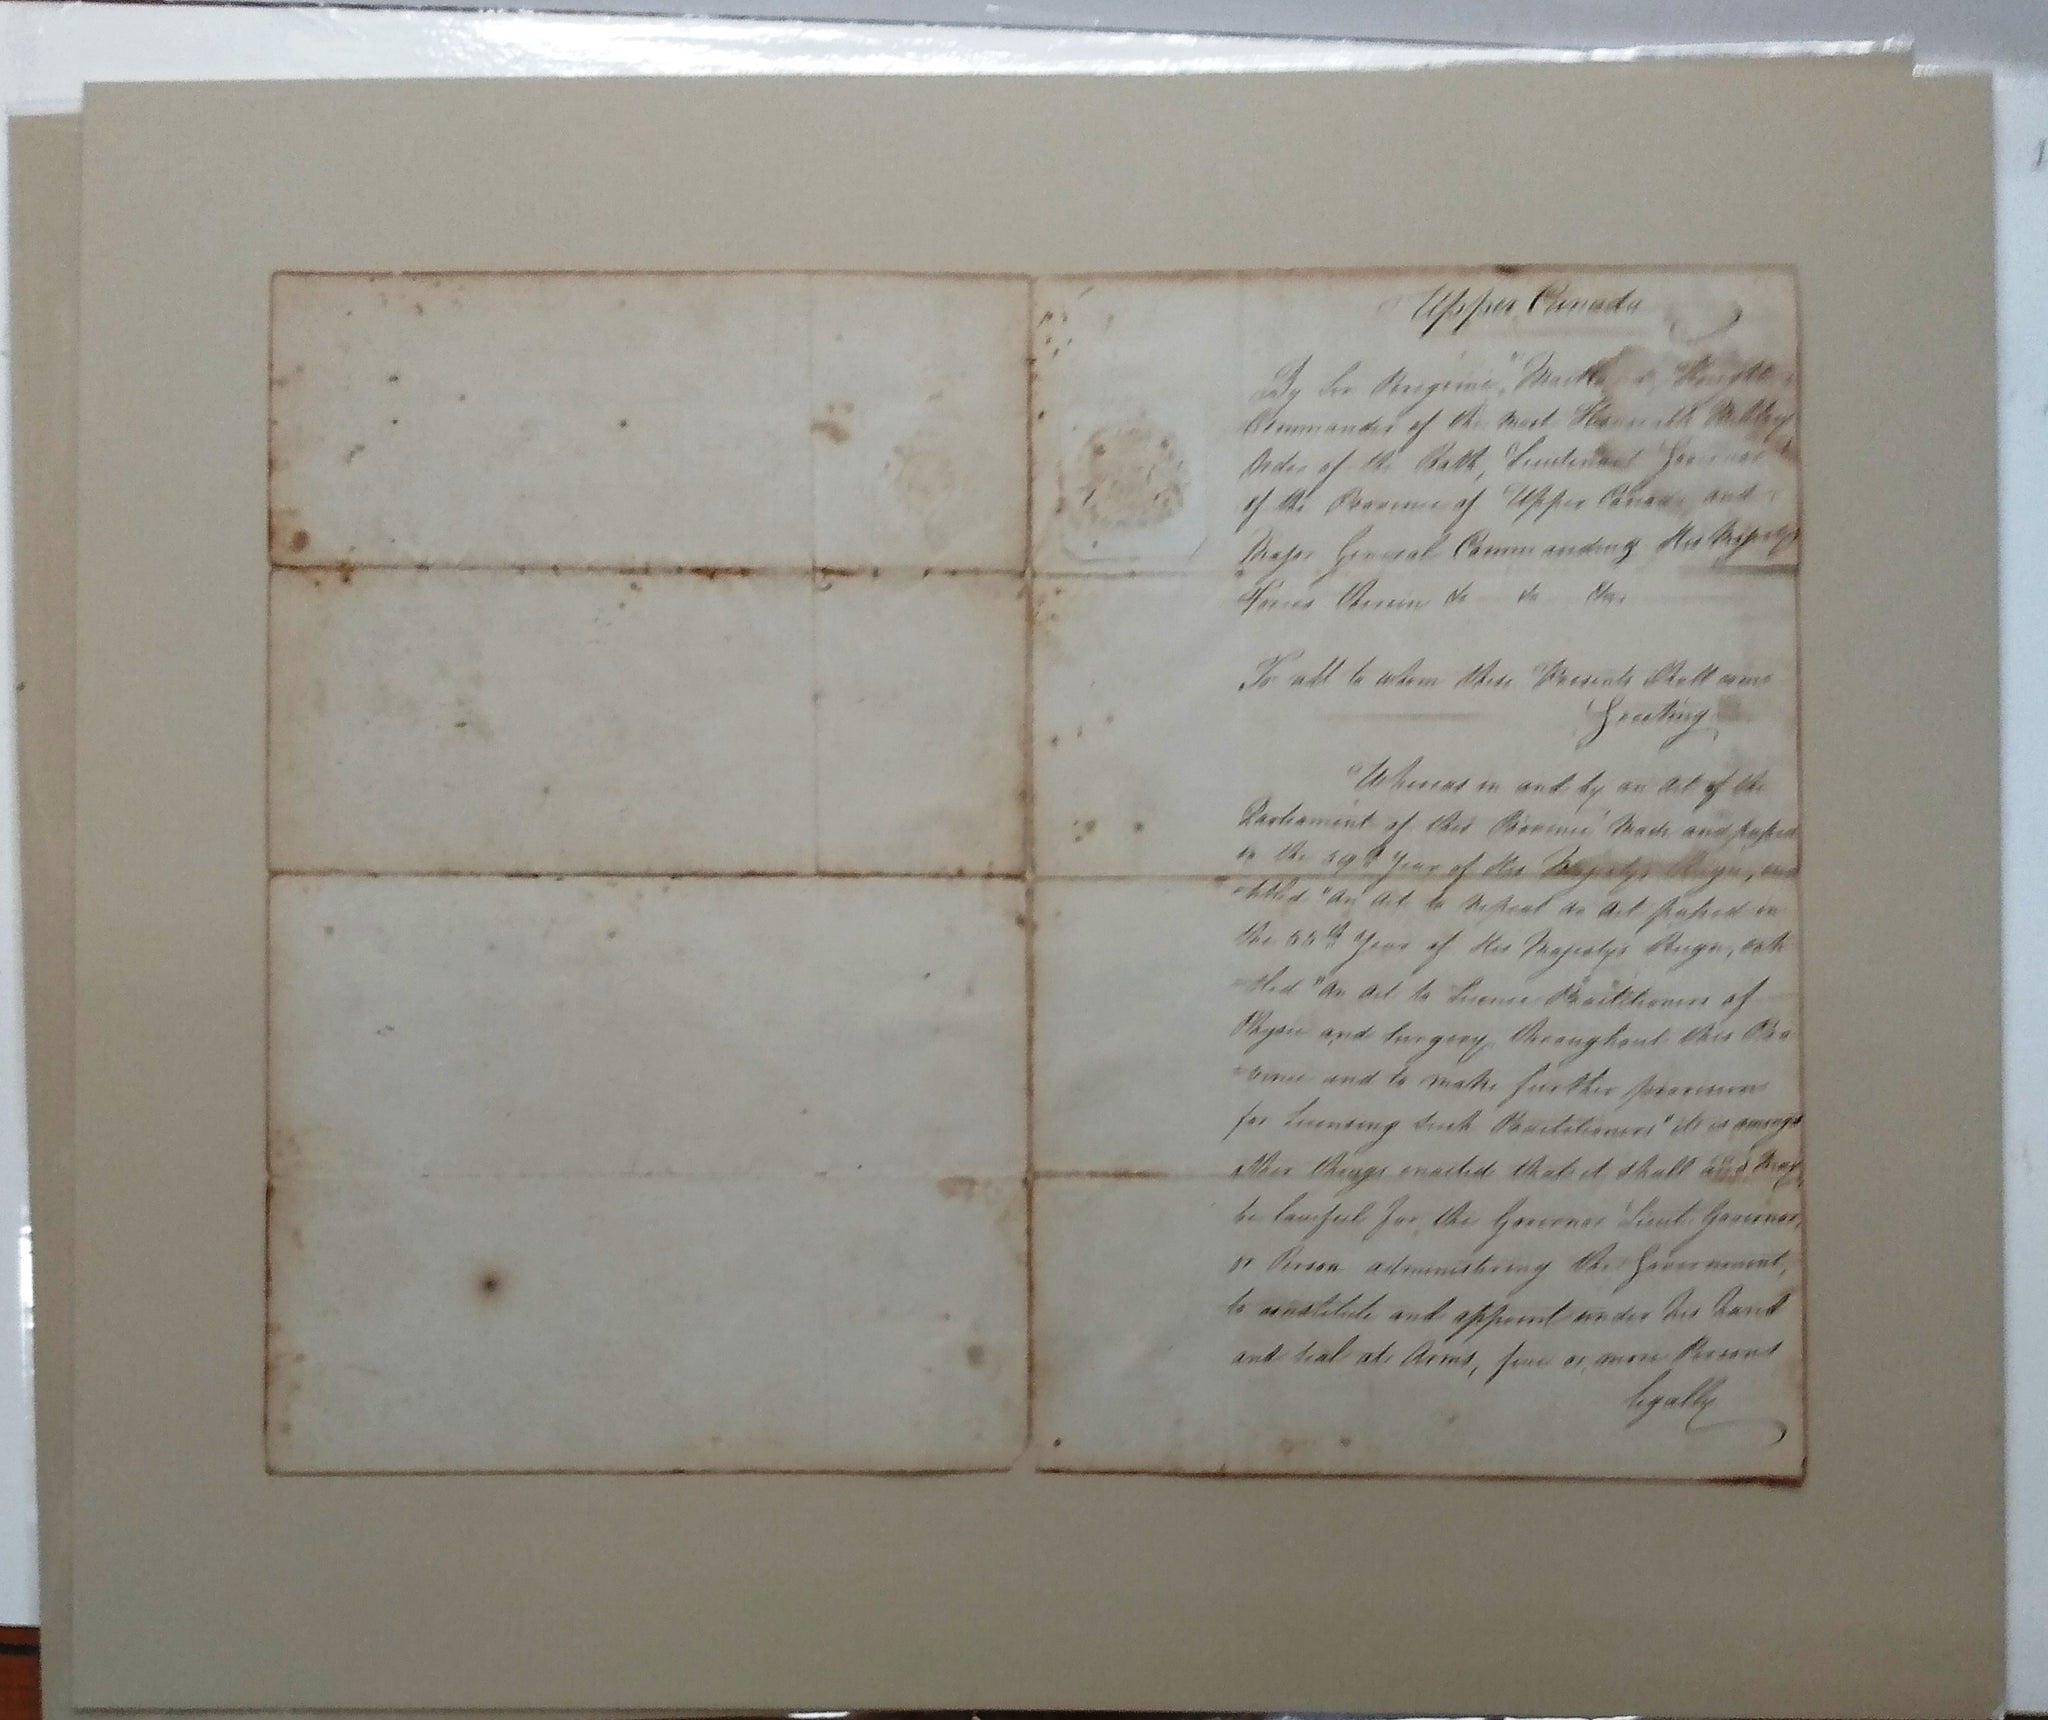 Upper Canada
By Sir Peregrine Maitland, Knight
Commander of the most Honorable Military
Order of the Bath, Lieutenant Governor
of the Province of Upper Canada, and
Major General Commanding His Majestys
Forces therein &c &c &c,
To all to whom these Presents shall come
Greeting,
Whereas in and by an Act of the
Parliament of this Province Made and passed
in the 59th Year of His Majestys Reign, enti
-titled "An Act to repeal an Act passed in
the 55th Year of His Majestys Reign, enti
-tled "An Act to License Practitioners of
Physic and Surgery throughout this Pro
-vince and to make further provision
for Licensing such Practitioners" it is amongst
other things enacted that it shall and May
be lawful for the Governor Lieut Governor,
or Person administering the Government,
to constitute and appoint under his hand
and seal at Arms, five or more Persons
legally